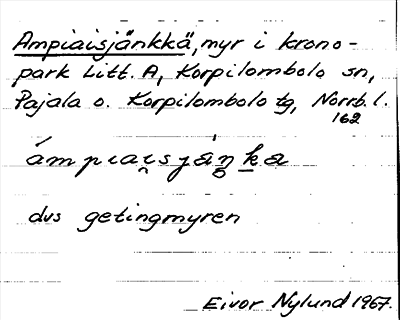 Ampiaisjänkkä, myr i krono-
park Litt. A, Korpilombolo sn,
Pajala o. Korpilombolo tg, Norrb. l.
162
ámpiai̯sjäŋ̀k̠a
dvs getingmyren
Eivor Nylund 1967.